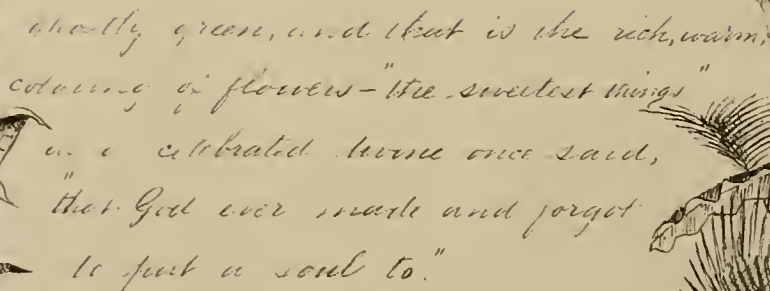 ghostly green, and that is the rich, warm,
colouring of flowers - "the sweetest things"
as a celebrated divine once said,
"that God ever made and forgot
to put a soul to."